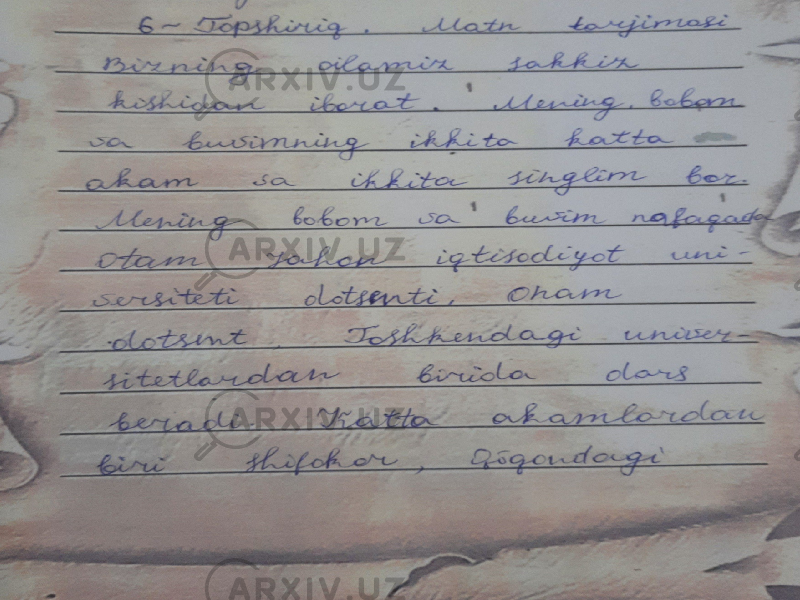 6- Topshiriq. Matn tarjimasi
Bizning oilamiz sakkiz
kishidan iborat. Mening bobom
va buvimning ikkita katta
akam va ikkita singlim bor.
Mening bobom va buvim nafaqada
Otam Jahon iqtisodiyot uni-
versiteti dotsenti, Onam
dotsent. Toshkendagi univer-
sitetlardan birida dars
beradi Katta akamlardan
biri shifokor, Qòqondagi
ARXIV.UZ
ARXIV.UZ
ARXIV.UZ
ARXIV.UZ